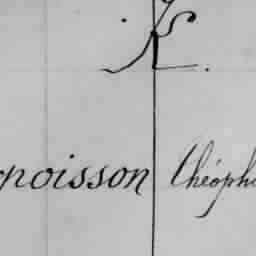 K.
poisson Théoph